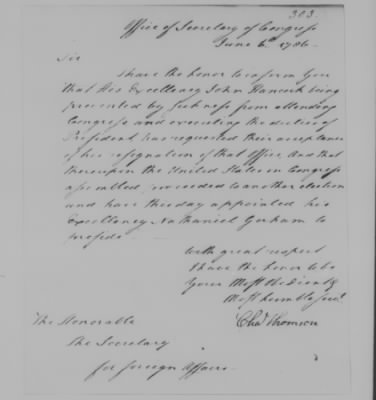 303.
Office of Secretary of Congress
June 6th 1786
Sir
I have the honor to inform You
that His Excellency John Hancock being
prevented by sickness from attending
Congress and executing the duties of
President has requested their acceptance
of his resignation of that Office And that
thereupon the United States in Congress
assembled proceeded to another election
and have this day appointed his
Excellency Nathaniel Gorham to
preside
With great respect
I have the honor to be
Your Most Obedient &
Most humble Servt
Chas Thomson
The Honorable
The Secretary
for foreign Affairs